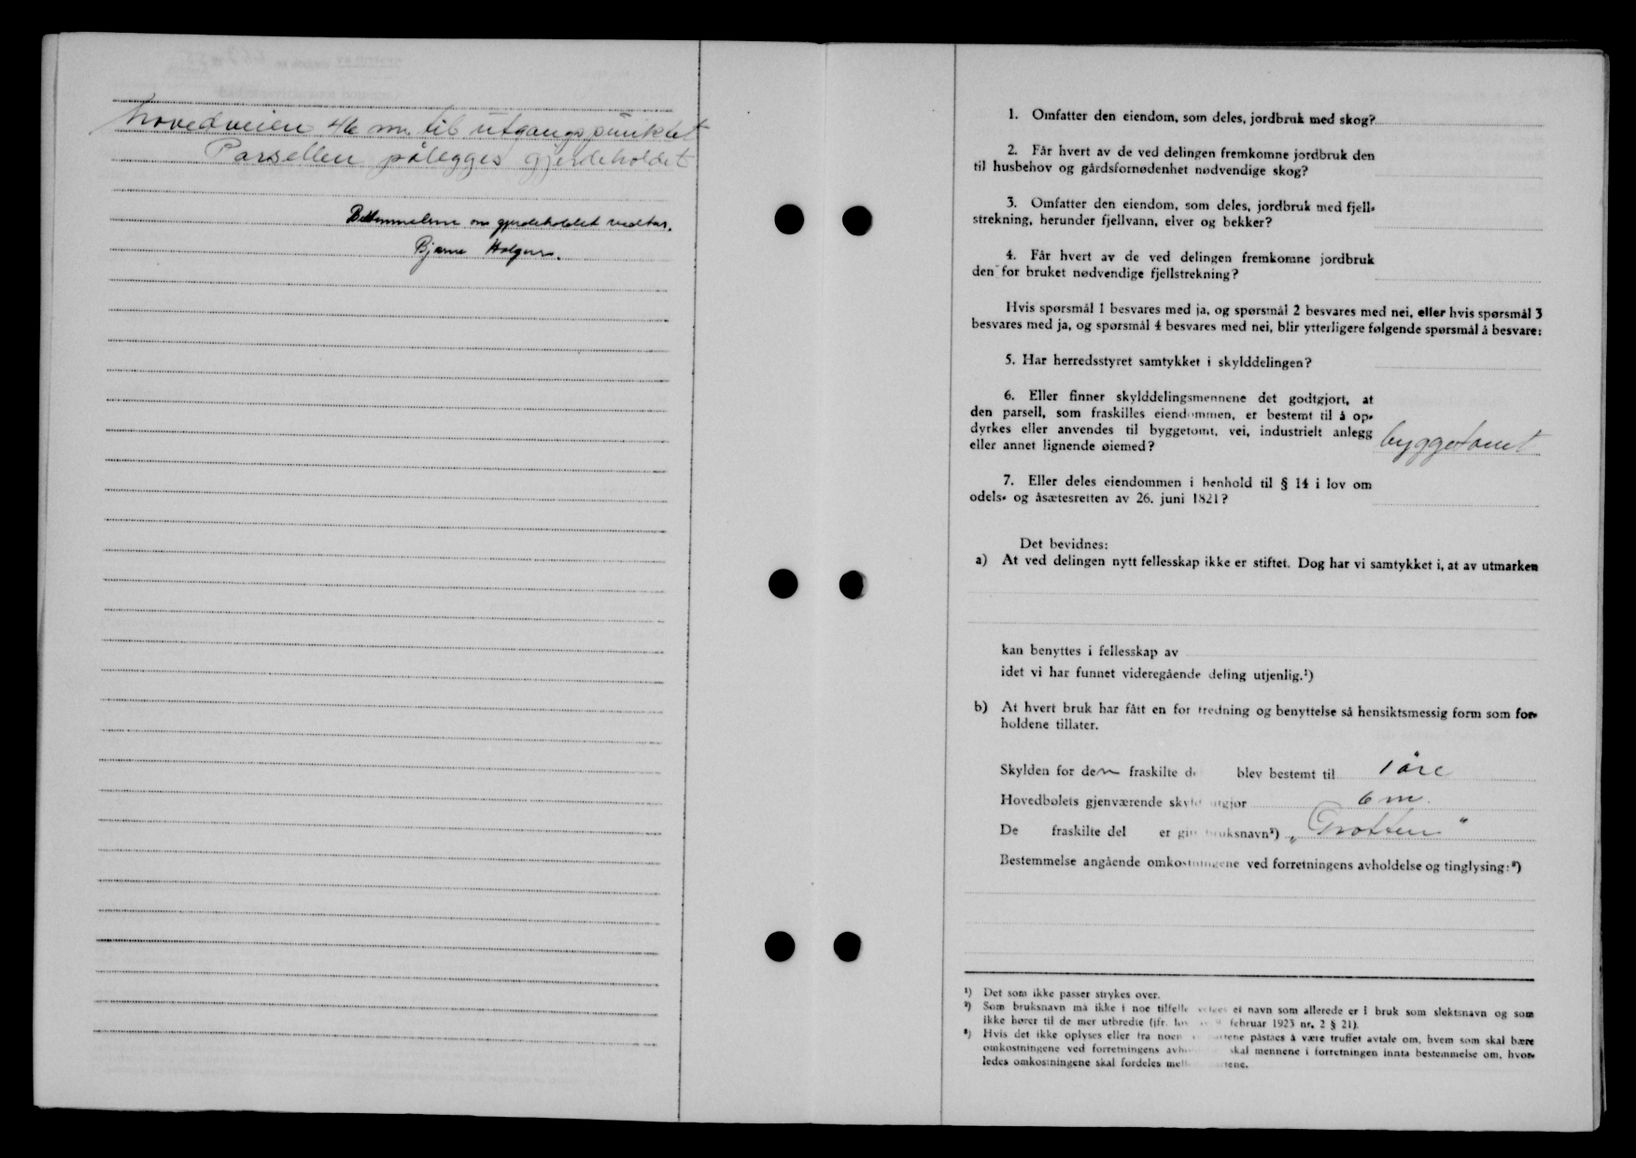 hovedveien 46 m. til utgangspunktet
Parsellen pålegges gjerdeholdet
Bestemmelsene om gjerdeholdet vedtas.
Bjarne
1. Omfatter den eiendom, som deles, jordbruk med skog?
2. Får hvert av de ved delingen fremkomne jordbruk den
til husbehov og gårdsfornødenhet nødvendige skog?
3. Omfatter den eiendom, som deles, jordbruk med fjell-
strekning, herunder fjellvann, elver og bekker?
4. Får hvert av de ved delingen fremkomne jordbruk
den for bruket nødvendige fjellstrekning?
Hvis spørsmål 1 besvares med ja, og spørsmål 2 besvares med nei, eller hvis spørsmål 3
besvares med ja, og spørsmål 4 besvares med nei, blir ytterligere følgende spørsmål å besvare:
5. Har herredsstyret samtykket i skylddelingen?
6. Eller finner skylddelingsmennene det godtgjort, at
den parsell, som fraskilles eiendommen, er bestemt til å op-
dyrkes eller anvendes til byggetomt, vei, industrielt anlegg
eller annet lignende øiemed?
byggetomt
7. Eller deles eiendommen i henhold til § 14 i lov om
odels- og åsætesretten av 26. juni 1821?
Det bevidnes:
a) At ved delingen nytt fellesskap ikke er stiftet. Dog har vi samtykket i, at av utmarken
kan benyttes i fellesskap av
idet vi har funnet videregående deling utjenlig.¹)
b) At hvert bruk har fått en for fredning og benyttelse så hensiktsmessig form som for-
holdene tillater.
Skylden for den fraskilte d blev bestemt til 1 øre
Hovedbølets gjenværende skyld utgjør 6 m.
De fraskilte del er gitt bruksnavn²) „Grotten"
Bestemmelse angående omkostningene ved forretningens avholdelse og tinglysing:³)
¹) Det som ikke passer strykes over.
²) Som bruksnavn må ikke i noe tilfelle velges et navn som allerede er i bruk som slektsnavn og som
ikke hører til de mer utbredte (jfr. lov av 9 februar 1923 nr. 2 § 21).
³) Hvis det ikke oplyses eller fra noen av partene påståes å være truffet avtale om, hvem som skal bære
omkostningene ved forretningens avholdelse skal mennene i forretningen innta bestemmelse om, hvor-
ledes omkostningene skal fordeles mellem partene.